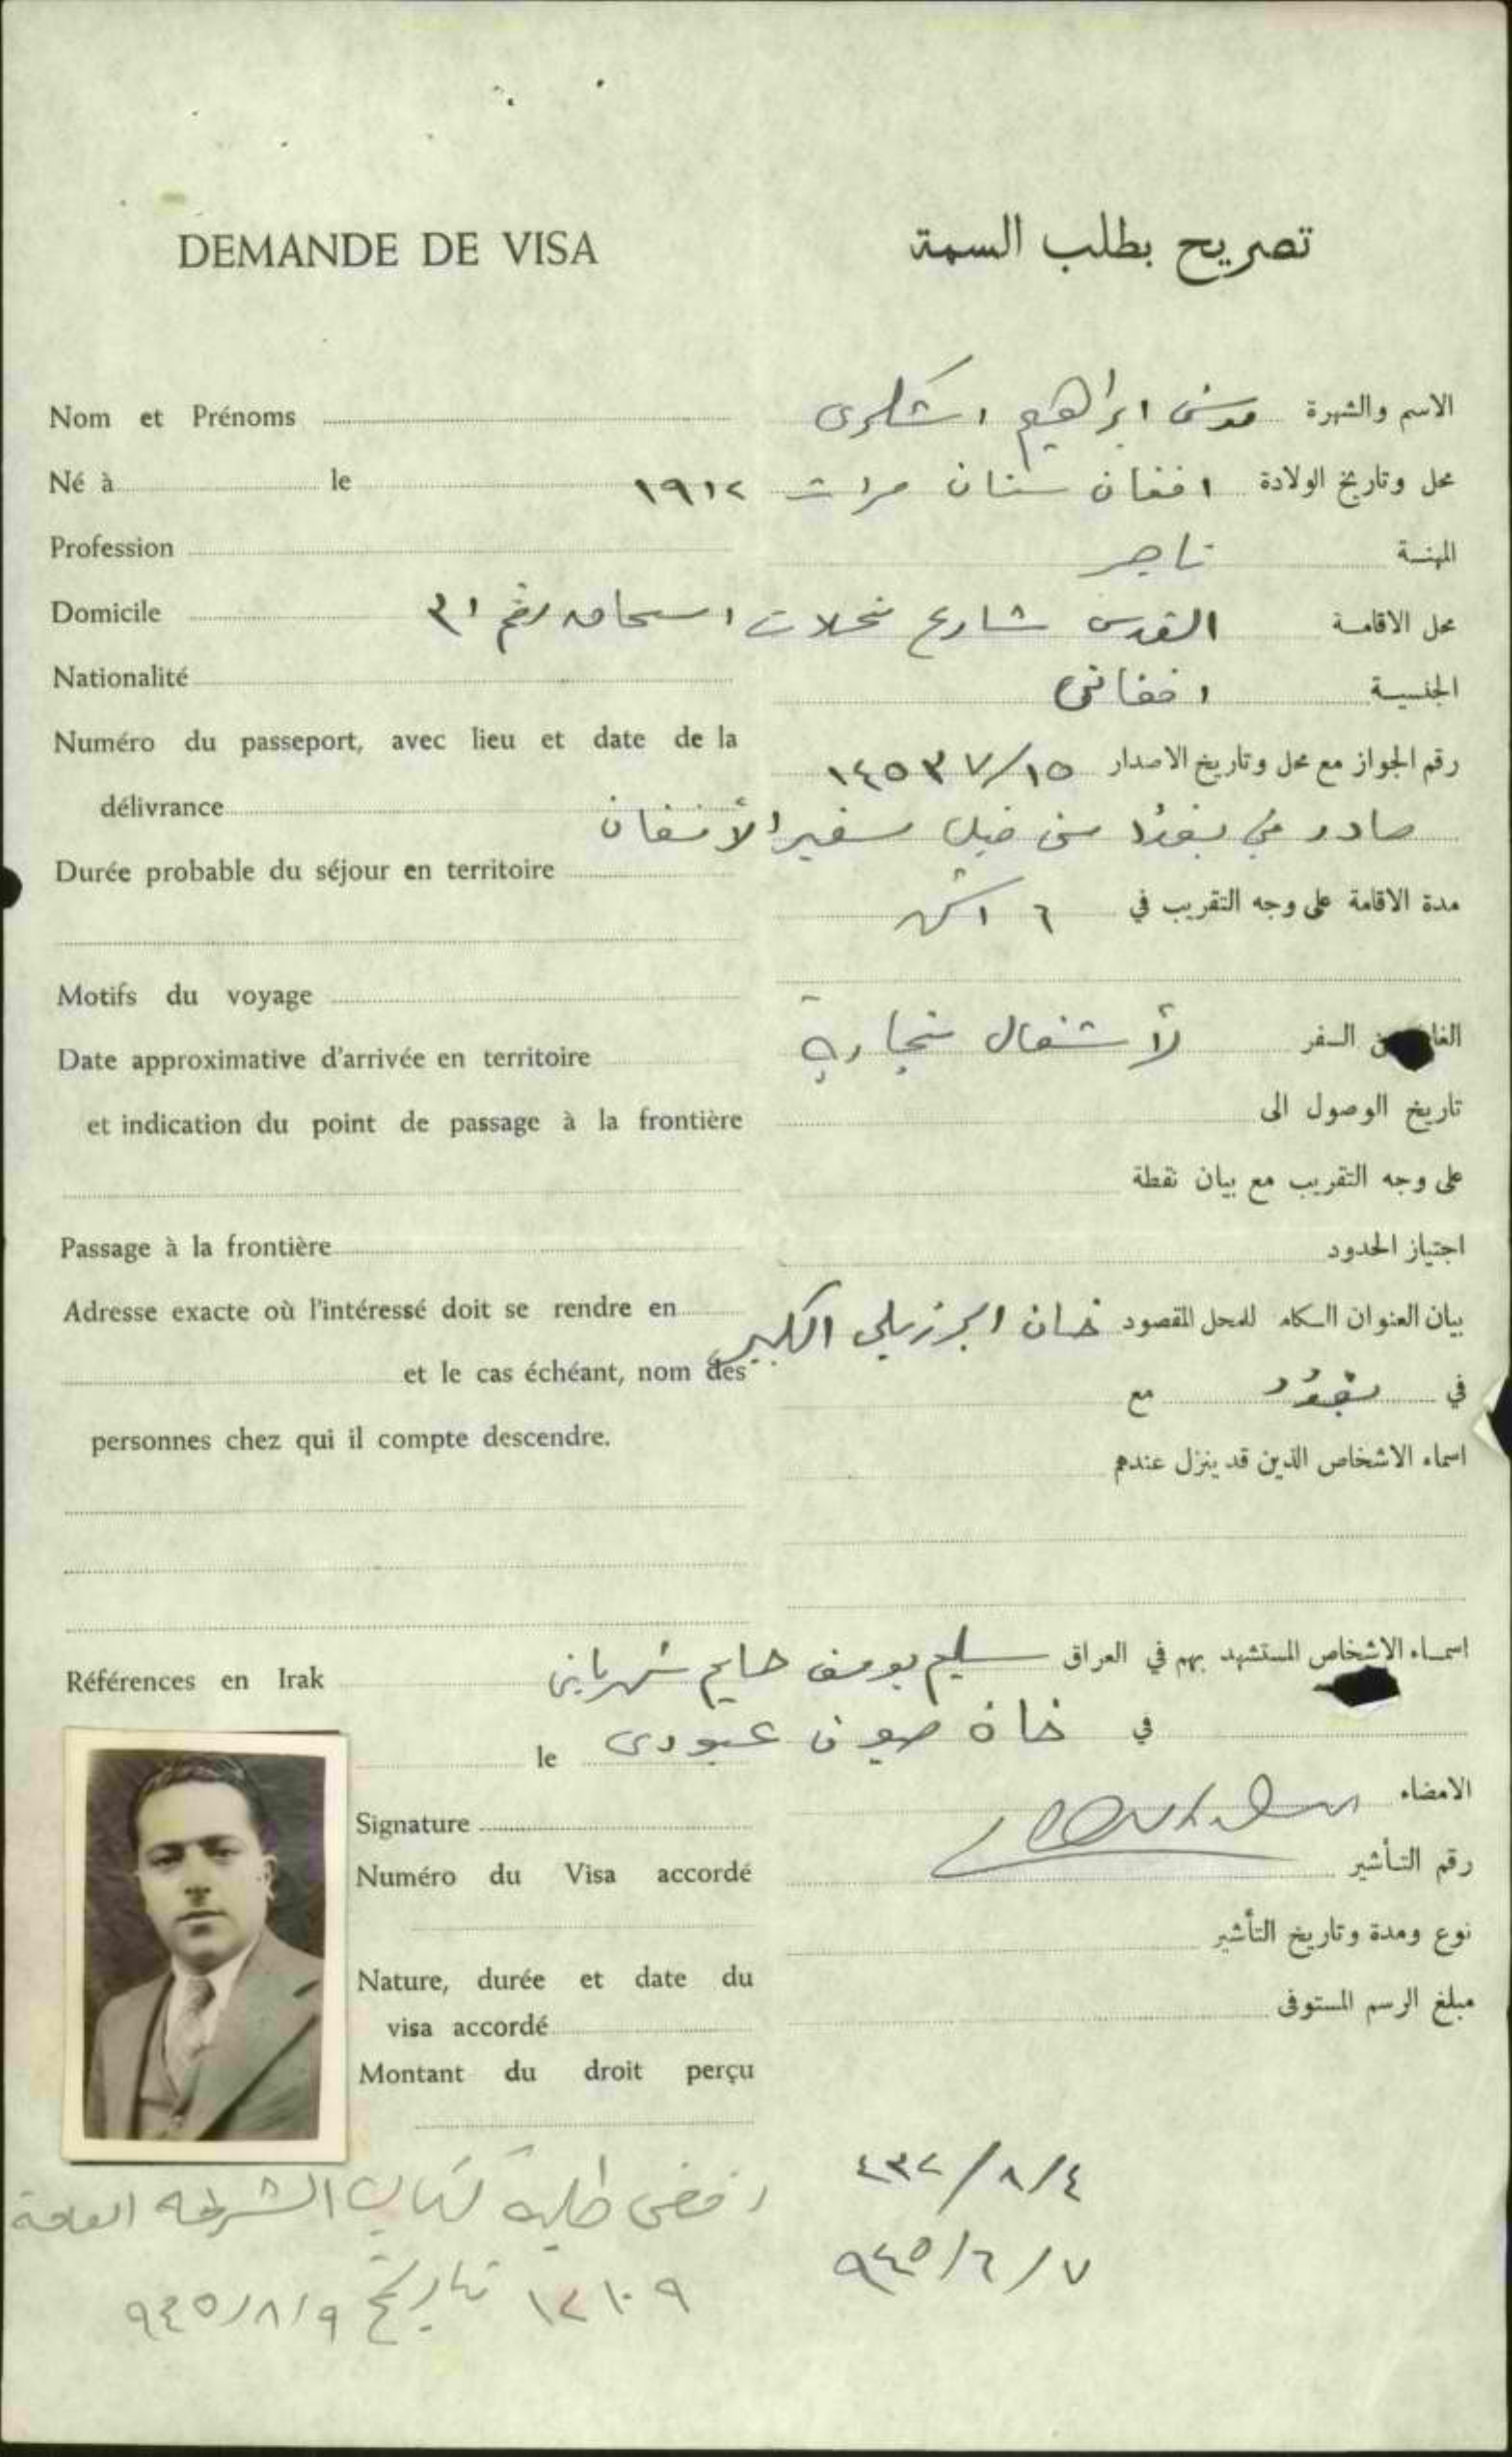 DEMANDE DE VISA
تصريح بطلب السمة
Nom et Prénoms
الاسم والشهرة موسى ابراهيم اشكرى
Né à le
محل وتاريخ الولادة افغان ستان هرات ١٩١٢
Profession
المهنة تاجر
Domicile
محل الاقامة القدس شارع نحلات اسحاق رقم ٣١
Nationalité
الجنسية افغانى
Numéro du passeport, avec lieu et date de la
délivrance
رقم الجواز مع محل وتاريخ الاصدار ١٤٥٣٧/١٥
صادر في بغداد من قبل سفير الأفغان
Durée probable du séjour en territoire
مدة الاقامة على وجه التقريب في ٦ اشهر
Motifs du voyage
من السفر لأشغال تجارية
Date approximative d'arrivée en territoire
et indication du point de passage à la frontière
تاريخ الوصول الى
على وجه التقريب مع بيان نقطة
Passage à la frontière
اجتياز الحدود
Adresse exacte où l'intéressé doit se rendre en
et le cas échéant, nom des
personnes chez qui il compte descendre.
بيان العنوان الكامل للمحل المقصود خان الكبير
في بغداد مع
اسماء الاشخاص الذين قد ينزل عندهم
Références en Irak
اسماء الاشخاص المستشهد بهم في العراق سليم يوسف حايم شهرباني
في خان صيون عبودى
le
Signature
الامضاء
Numéro du Visa accordé
رقم التأشير
Nature, durée et date du
visa accordé
نوع ومدة وتاريخ التأشير
Montant du droit perçu
مبلغ الرسم المستوفى
٤٣٢/٨/٤
٩٤٥/٦/٧
رفض طلبه بكتاب الشرطة العامة
١٢١٠٩ تاريخ ٩٤٥/٨/٩